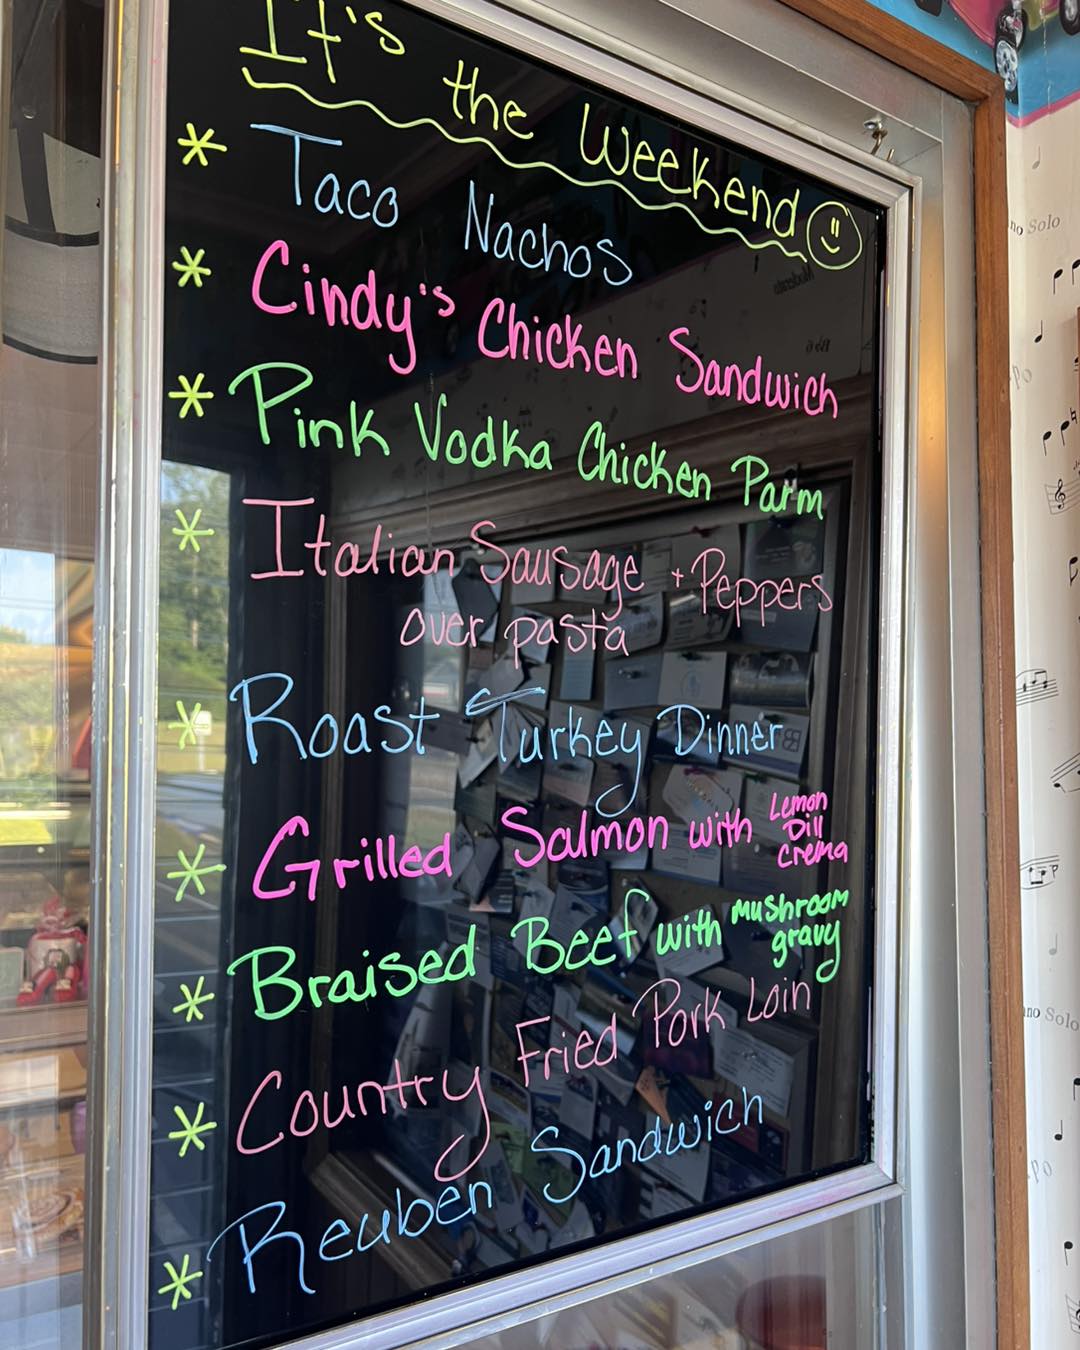 It's the Weekend
* Taco Nachos
* Cindy's Chicken Sandwich
* Pink Vodka Chicken Parm
* Italian Sausage + Peppers
over pasta
* Roast Turkey Dinner
* Grilled Salmon with Lemon
Dill
Crema
* Braised Beef with Mushroom
gravy
* Country Fried Pork Loin
* Reuben Sandwich
no Solo
no Solo